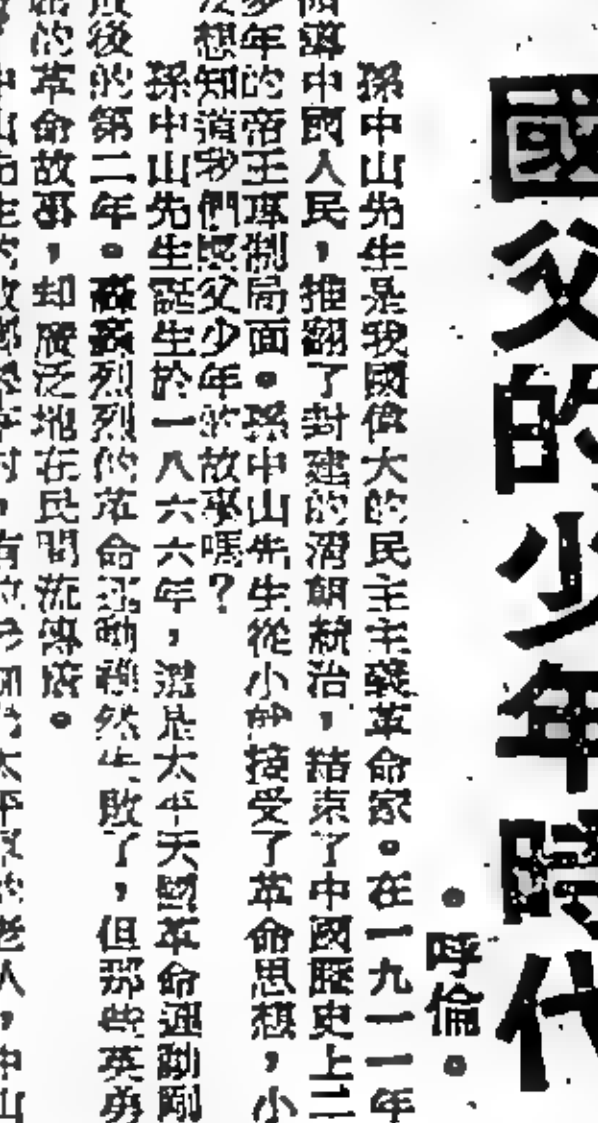 國父的少年時代
呼倫
孫中山先生是我國偉大的民主主義革命家。在一九一一年
中國人民，推翻了封建的清朝統治，結束了中國歷史上二
多年的帝王專制局面。孫中山先生從小就接受了革命思想，小
想知道我們國父少年的故事嗎？
孫中山先生誕生於一八六六年，還是太平天國革命運動剛
後的第二年。轟轟烈烈的革命運動雖然失敗了，但那些英勇
的革命故事，却廣泛地在民間流傳
中山先生的故鄉 村，有 太平 的老人，中山